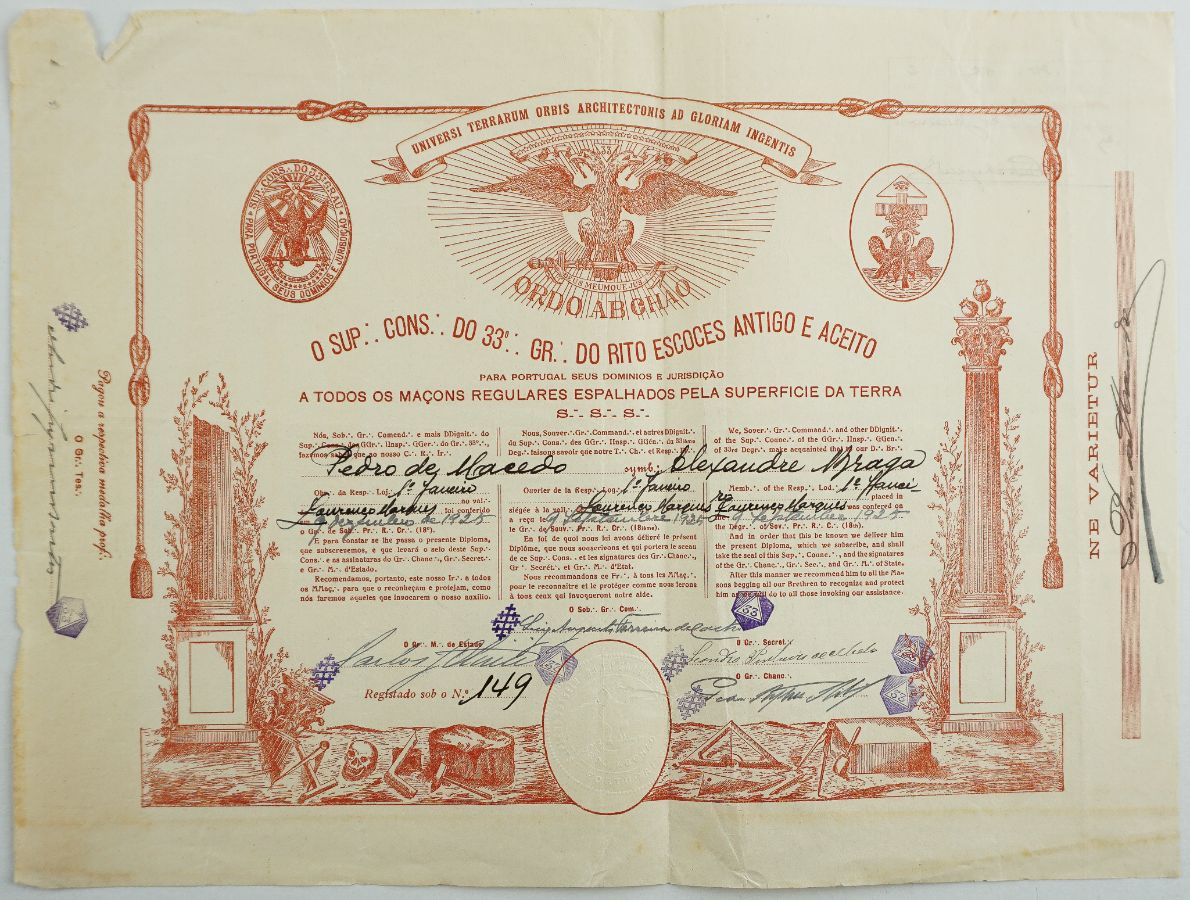 UNIVERSI TERRARUM ORBIS ARCHITECTONIS AD GLORIAM INGENTIS
SUP.·. CONS.·. DO 33.º GRAU
PARA PORTUGAL SEUS DOMINIOS E JURISDIÇÃO
33
DEUS MEUMQUE JUS
ORDO AB CHAO
O SUP.·. CONS.·. DO 33º.·. GR.·. DO RITO ESCOCES ANTIGO E ACEITO
PARA PORTUGAL SEUS DOMINIOS E JURISDIÇÃO
A TODOS OS MAÇONS REGULARES ESPALHADOS PELA SUPERFICIE DA TERRA
S.·. S.·. S.·.
Nós, Sob.·. Gr.·. Comend.·. e mais DDignit.·. do
Sup.·. Cons.·. dos GGr.·. IInsp.·. GGer.·. do Gr.·. 33º.,
fazemos saber que ao nosso C.·. R.·. Ir.·.
Pedro de Macedo symb.·. Alexandre Braga
Obr.·. da Resp.·. Loj.·. 1º Janeiro
no val.·.
Lourenço Marques foi conferido
9 Setembro de 1928
o Gr.·. de Sob.·. Pr.·. R.·. C.·. (18º).
E para constar se lhe passa o presente Diploma,
que subscrevemos, e que levará o selo deste Sup.·.
Cons.·. e as assinaturas do Gr.·. Chanc.·., Gr.·. Secret.·.
e Gr.·. M.·. d'Estado.
Recomendamos, portanto, este nosso Ir.·. a todos
os MMaç.·. para que o reconheçam e protejam, como
nós faremos àqueles que invocarem o nosso auxilio.
Nous, Souver.·. Gr.·. Command.·. et autres DDignit.·.
du Sup.·. Cons.·. des GGr.·. IInsp.·. GGén.·. du 33ième
Deg.·. faisons savoir que notre T.·. Ch.·. et Resp.·. Fr.·.
Ouvrier de la Resp.·. Log.·. 1º Janeiro
siégée à la vall.·. Lourenço Marques
a reçu le 9 Septembre 1928
le Gr.·. de Souv.·. Pr.·. R.·. Cr.·. (18ième).
En foi de quoi nous lui avons délivré le présent
Diplôme, que nous souscrivons et qui portera le sceau
de ce Sup.·. Cons.·. et les signatures des Gr.·. Chanc.·.,
Gr.·. Secrét.·. et Gr.·. M.·. d'Etat.
Nous recommandons ce Fr.·. à tous les MMaç.·.
pour le reconnaître et le protéger comme nous ferons
à tous ceux qui invoqueront notre aide.
We, Sover.·. Gr.·. Command.·. and other DDignit.·.
of the Sup.·. Counc.·. of the GGr.·. IInsp.·. GGen.·.
of 33rd Degr.·. make acquainted that our D.·. Br.·.
Memb.·. of the Resp.·. Lod.·. 1º Janei-
ro placed in
Lourenço Marques was conferred on
the 9 September 1928
the Degr.·. of Sov.·. Pr.·. R.·. C.·. (18th).
And in order that this be known we deliver him
the present Diploma, which we subscribe, and shall
take the seal of this Sup.·. Counc.·., and the signatures
of the Gr.·. Chanc.·., Gr.·. Sec.·. and Gr.·. M.·. of State.
After this manner we recommend him to all the Ma-
sons begging all our Brethren to recognize and protect
him as we will do to all those invoking our assistance.
O Sob.·. Gr.·. Com.·.
O Gr.·. M.·. de Estado
O Gr.·. Secret.·.
O Gr.·. Chanc.·.
Registado sob o N.º 149
NE VARIETUR
Pagou a respectiva medalha prof.
O Gr.·. Tes.·.